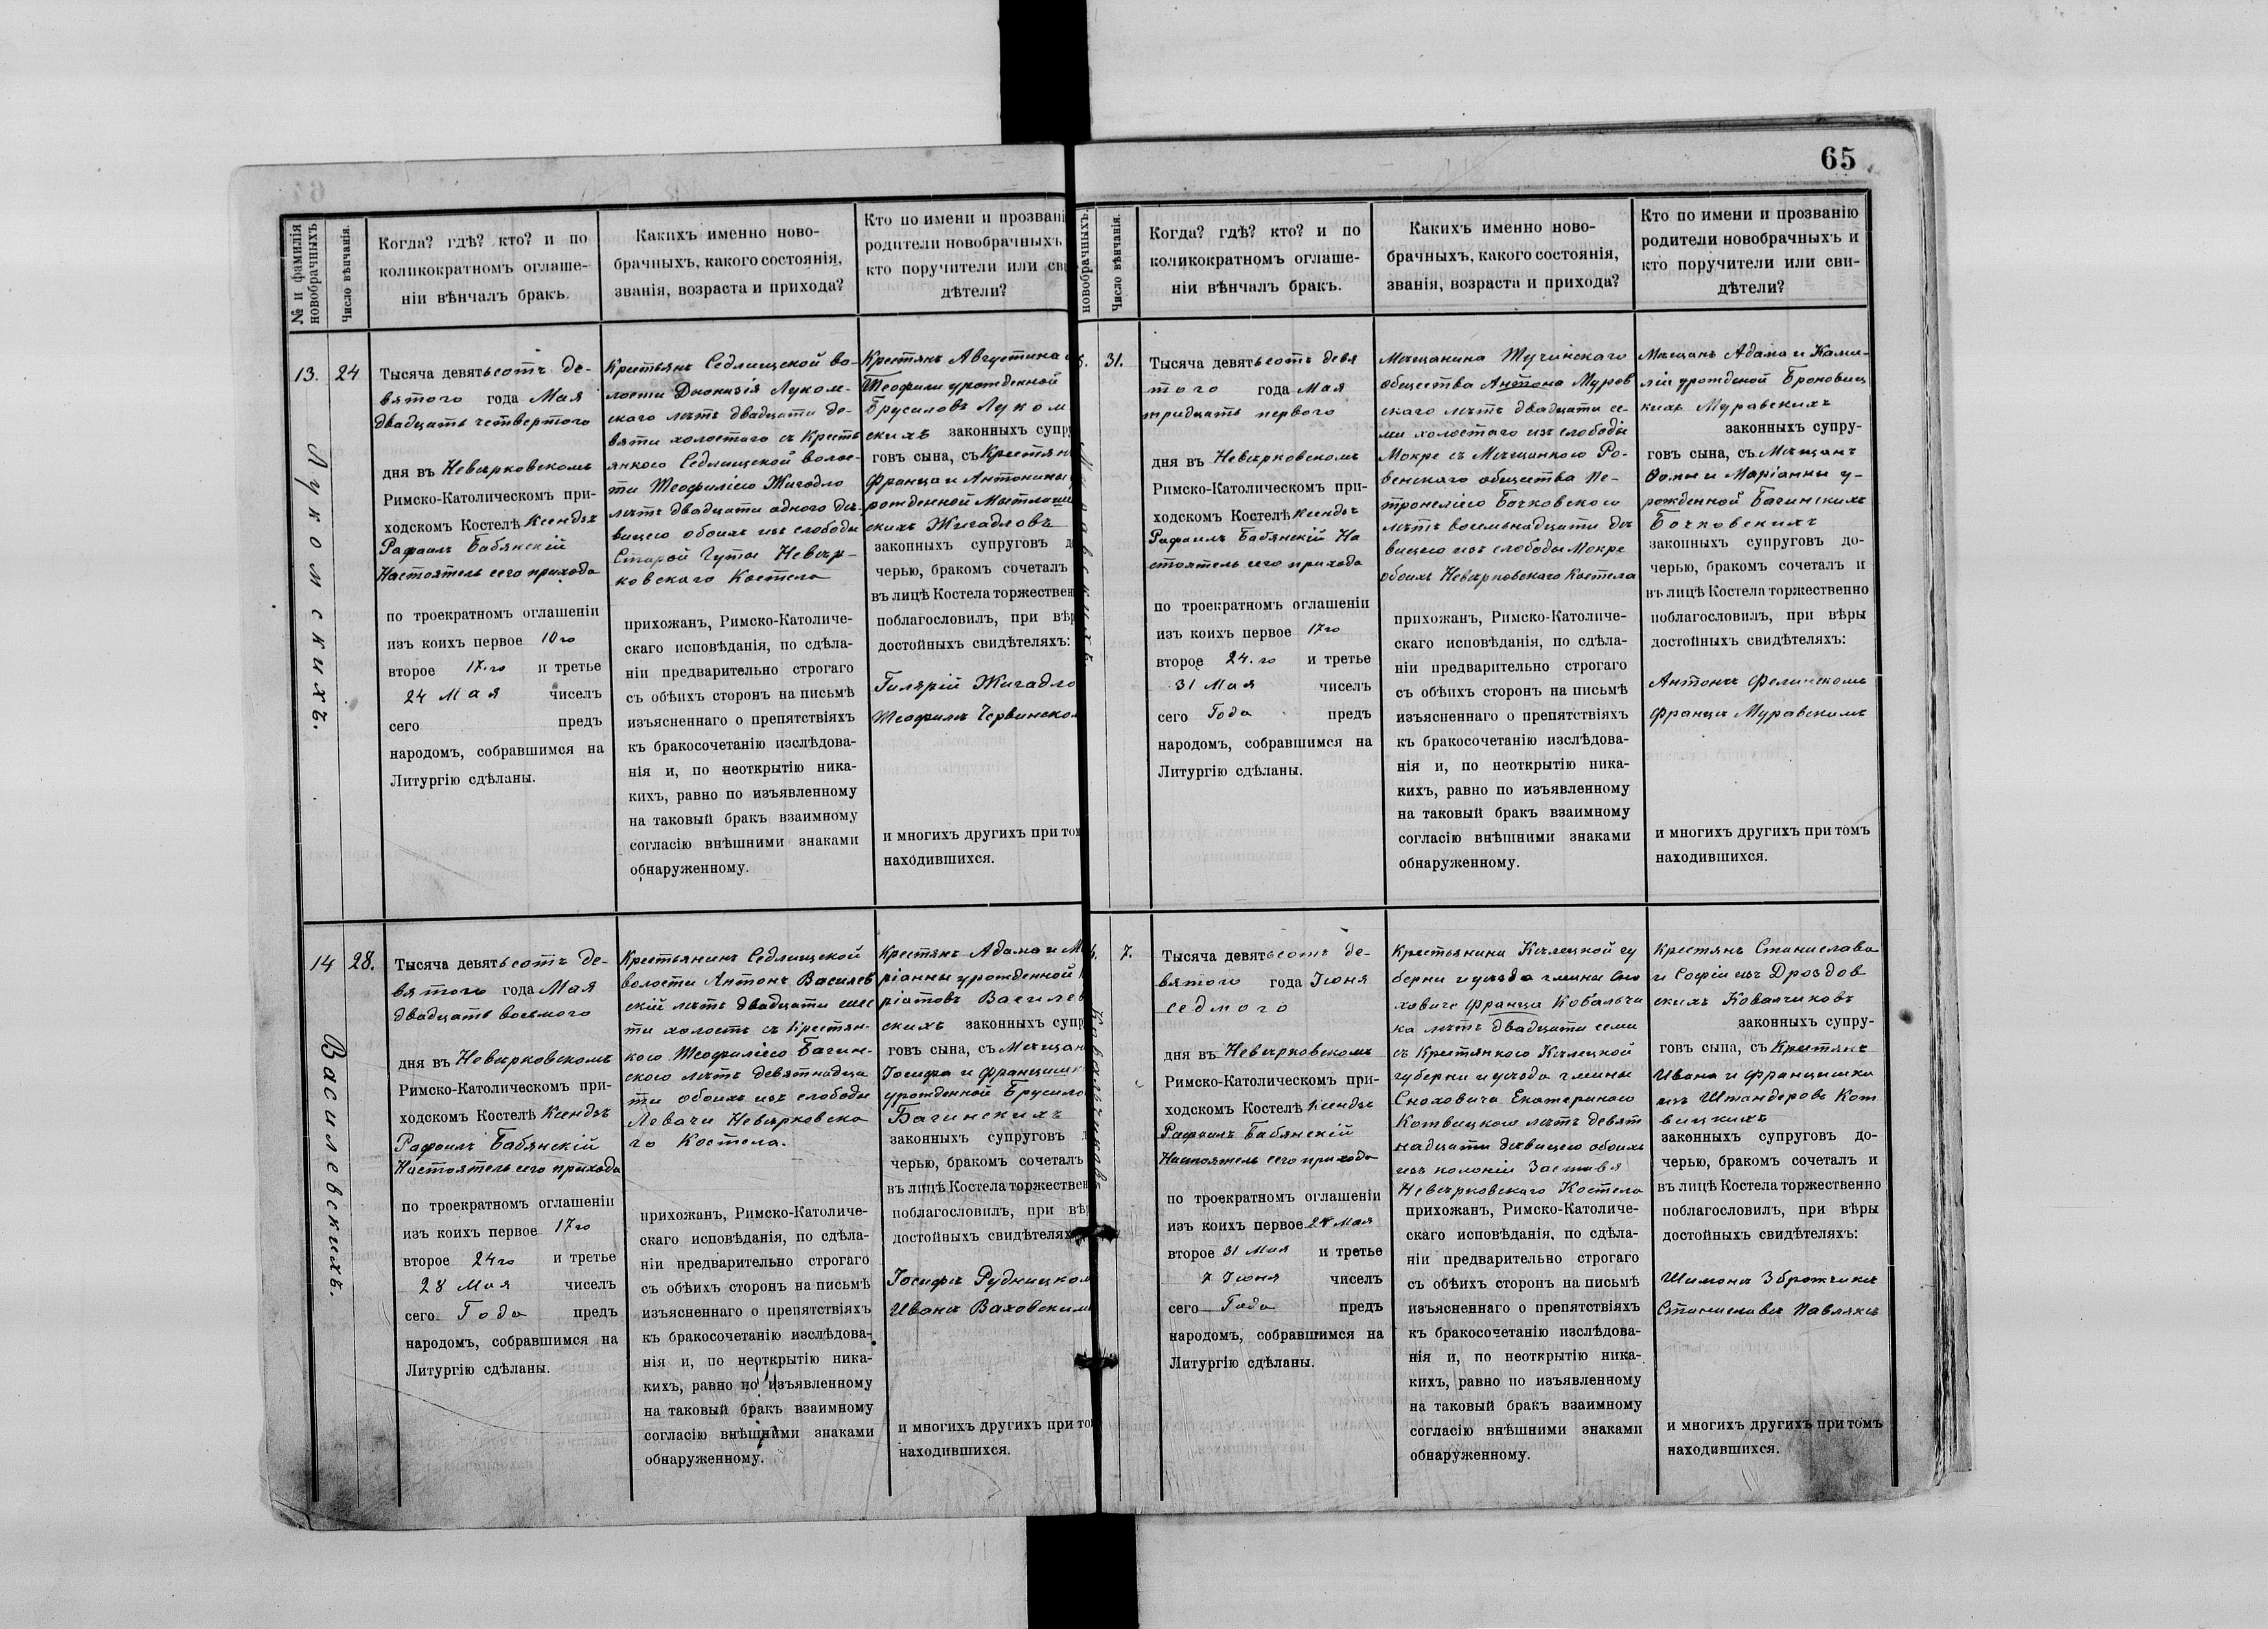 65
№ и фамилія
новобрачныхъ.
Число вѣнчанія.
Когда? гдѣ? кто? и по
коликократномъ оглаше-
ніи вѣнчалъ бракъ.
Какихъ именно ново-
брачныхъ, какого состоянія,
званія, возраста и прихода?
Кто по имени и прозвані
родители новобрачныхъ
кто поручители или сви
дѣтели?
13.
24
Лукомскихъ.
Тысяча девятьсотъ де-
вятого года Мая
двадцать четвертого
дня въ Невѣрковскомъ
Римско-Католическомъ при-
ходскомъ Костелѣ Ксендзъ
Рафаилъ Бабянскій
Настоятель сего прихода
по троекратномъ оглашеніи
изъ коихъ первое 10го
второе 17.го и третье
24 Мая чиселъ
сего предъ
народомъ, собравшимся на
Литургію сдѣланы.
Крестьянъ Седлищской во-
лости Діонизія Луком-
скаго лѣтъ двадцати де-
вяти холостаго съ Кресть
янкою Седлищской волос-
ти Теофилією Жигадло
лѣтъ двадцати одного дѣ-
вицею обоихъ изъ слободы
Старой Гуты Невѣр-
ковскаго Костела
прихожанъ, Римско-Католиче-
скаго исповѣданія, по сдѣла-
ніи предварительно строгаго
съ обѣихъ сторонъ на письмѣ
изъясненнаго о препятствіяхъ
къ бракосочетанію изслѣдова-
нія и, по неоткрытію ника-
кихъ, равно по изъявленному
на таковый бракъ взаимному
согласію внѣшними знаками
обнаруженному.
Крестянъ Августина
Теофили урожденной
Брусиловъ Луком
скихъ законныхъ супру
говъ сына, съ Крестян
Франца и Антонины
рожденной
скихъ Жигадловъ
законныхъ супруговъ д
черью, бракомъ сочеталъ
въ лицѣ Костела торжествен
поблагословилъ, при вѣр
достойныхъ свидѣтеляхъ:
Гилярій Жигадло
Теофилъ Червинском
и многихъ другихъ при том
находившихся.
14
28.
Василевскихъ.
Тысяча девятьсотъ де-
вятого года Мая
двадцать восьмого
дня въ Невѣрковскомъ
Римско-Католическомъ при-
ходскомъ Костелѣ Ксендзъ
Рафаилъ Бабянскій
Настоятель сего прихода
по троекратномъ оглашеніи
изъ коихъ первое 17го
второе 24го и третье
28 Мая чиселъ
сего Года предъ
народомъ, собравшимся на
Литургію сдѣланы.
Крестьянинъ Седлищской
волости Антонъ Василев
скій лѣтъ двадцати шес
ти холостъ съ Крестян-
кою Теофилією Багин-
скою лѣтъ девятнадца
ти обоихъ изъ слободы
Левачи Невѣрковска
го Костела.
прихожанъ, Римско-Католиче-
скаго исповѣданія, по сдѣла-
ніи предварительно строгаго
съ обѣихъ сторонъ на письмѣ
изъясненнаго о препятствіяхъ
къ бракосочетанію изслѣдова-
нія и, по неоткрытію ника-
кихъ, равно по изъявленному
на таковый бракъ взаимному
согласію внѣшними знаками
обнаруженному.
Крестянъ Адама и Ма
ріанны урожденной
ріатовъ Василев
скихъ законныхъ супр
говъ сына, съ Мѣщан
Іосифа и Францишк
урожденной Брусило
Багинскихъ
законныхъ супруговъ д
черью, бракомъ сочеталъ
въ лицѣ Костела торжествен
поблагословилъ, при вѣр
достойныхъ свидѣтелях
Іосифъ Рудницком
Иванъ Ваховским
и многихъ другихъ при то
находившихся.
новобрачныхъ.
Число вѣнчанія.
Когда? гдѣ? кто? и по
коликократномъ оглаше-
ніи вѣнчалъ бракъ.
Какихъ именно ново-
брачныхъ, какого состоянія,
званія, возраста и прихода?
Кто по имени и прозванію
родители новобрачныхъ и
кто поручители или сви-
дѣтели?
31.
Тысяча девятьсотъ девя
того года Мая
тридцать первого
дня въ Невѣрковскомъ
Римско-Католическомъ при-
ходскомъ Костелѣ Ксендзъ
Рафаилъ Бабянскій На
стоятель сего прихода
по троекратномъ оглашеніи
изъ коихъ первое 17го
второе 24.го и третье
31 Мая чиселъ
сего Года предъ
народомъ, собравшимся на
Литургію сдѣланы.
Мѣщанина Тучинскаго
общества Антона Мурав
скаго лѣтъ двадцати се-
ми холостаго изъ слободы
Мокре съ Мѣщанкою Ро-
венскаго общества Пе-
тронелією Бочковскою
лѣтъ восемьнадцати дѣ
вицею изъ слободы Мокре
обоихъ Невѣрковскаго Костела
прихожанъ, Римско-Католиче-
скаго исповѣданія, по сдѣла-
ніи предварительно строгаго
съ обѣихъ сторонъ на письмѣ
изъясненнаго о препятствіяхъ
къ бракосочетанію изслѣдова-
нія и, по неоткрытію ника-
кихъ, равно по изъявленному
на таковый бракъ взаимному
согласію внѣшними знаками
обнаруженному.
Мѣщанъ Адама и Ками-
ліи урожденой Броновиц
кихъ Муравскихъ
законныхъ супру-
говъ сына, съ Мѣщанъ
Ѳомы и Маріанны у-
рожденной Багинскихъ
Бочковскихъ
законныхъ супруговъ до-
черью, бракомъ сочеталъ и
въ лицѣ Костела торжественно
поблагословилъ, при вѣры
достойныхъ свидѣтеляхъ:
Антонъ Фелинскомъ
Францъ Муравскомъ
и многихъ другихъ при томъ
находившихся.
7.
Ковальчиковъ
Тысяча девятьсотъ де-
вятого года Іюня
седмого
дня въ Невѣрковскомъ
Римско-Католическомъ при-
ходскомъ Костелѣ Ксендзъ
Рафаилъ Бабянскій
Настоятель сего прихода
по троекратномъ оглашеніи
изъ коихъ первое 24 Мая
второе 31 Мая и третье
7 Іюня чиселъ
сего Года предъ
народомъ, собравшимся на
Литургію сдѣланы.
Крестьянина Кѣлецкой гу
берни и уѣзда гмины Сно
ховиче Франца Ковальчи
ка лѣтъ двадцати семи
съ Крестянкою Кѣлецкой
губерни и уѣзда гмины
Сноховичи Екатериною
Котвицкою лѣтъ девят
надцати дѣвицею обоихъ
изъ колоніи Заставя
Невѣрковскаго Костела
прихожанъ, Римско-Католиче-
скаго исповѣданія, по сдѣла-
ніи предварительно строгаго
съ обѣихъ сторонъ на письмѣ
изъясненнаго о препятствіяхъ
къ бракосочетанію изслѣдова-
нія и, по неоткрытію ника-
кихъ, равно по изъявленному
на таковый бракъ взаимному
согласію внѣшними знаками
обнаруженному.
Крестянъ Станислава
и Софіи изъ Дроздов
скихъ Ковалчиковъ
законныхъ супру-
говъ сына, съ Крестянъ
Ивана и Францишки
изъ Штандеровъ Кот
вицкихъ
законныхъ супруговъ до-
черью, бракомъ сочеталъ и
въ лицѣ Костела торжественно
поблагословилъ, при вѣры
достойныхъ свидѣтеляхъ:
Шимонъ Зброжчикъ
Станиславъ Павлякъ
и многихъ другихъ при томъ
находившихся.